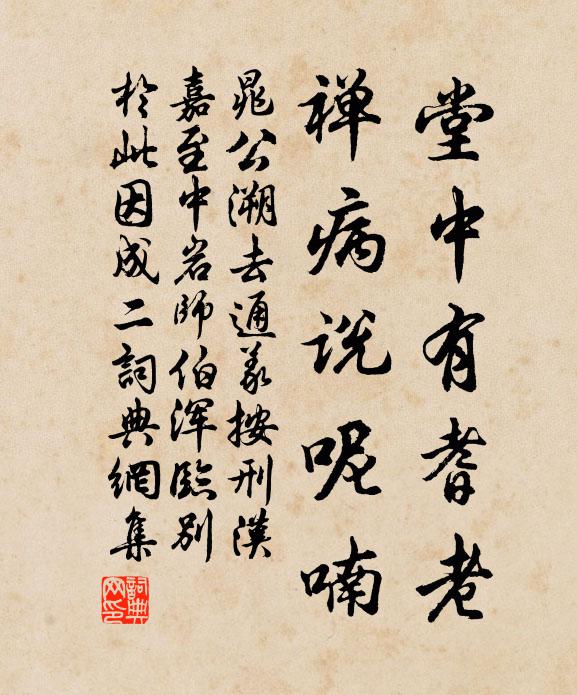 堂中有耆老
禅病说呢喃
晁公溯去通义按刑汉
嘉至中岩师伯浑临别
於此因成二詞典網集
詞典网印